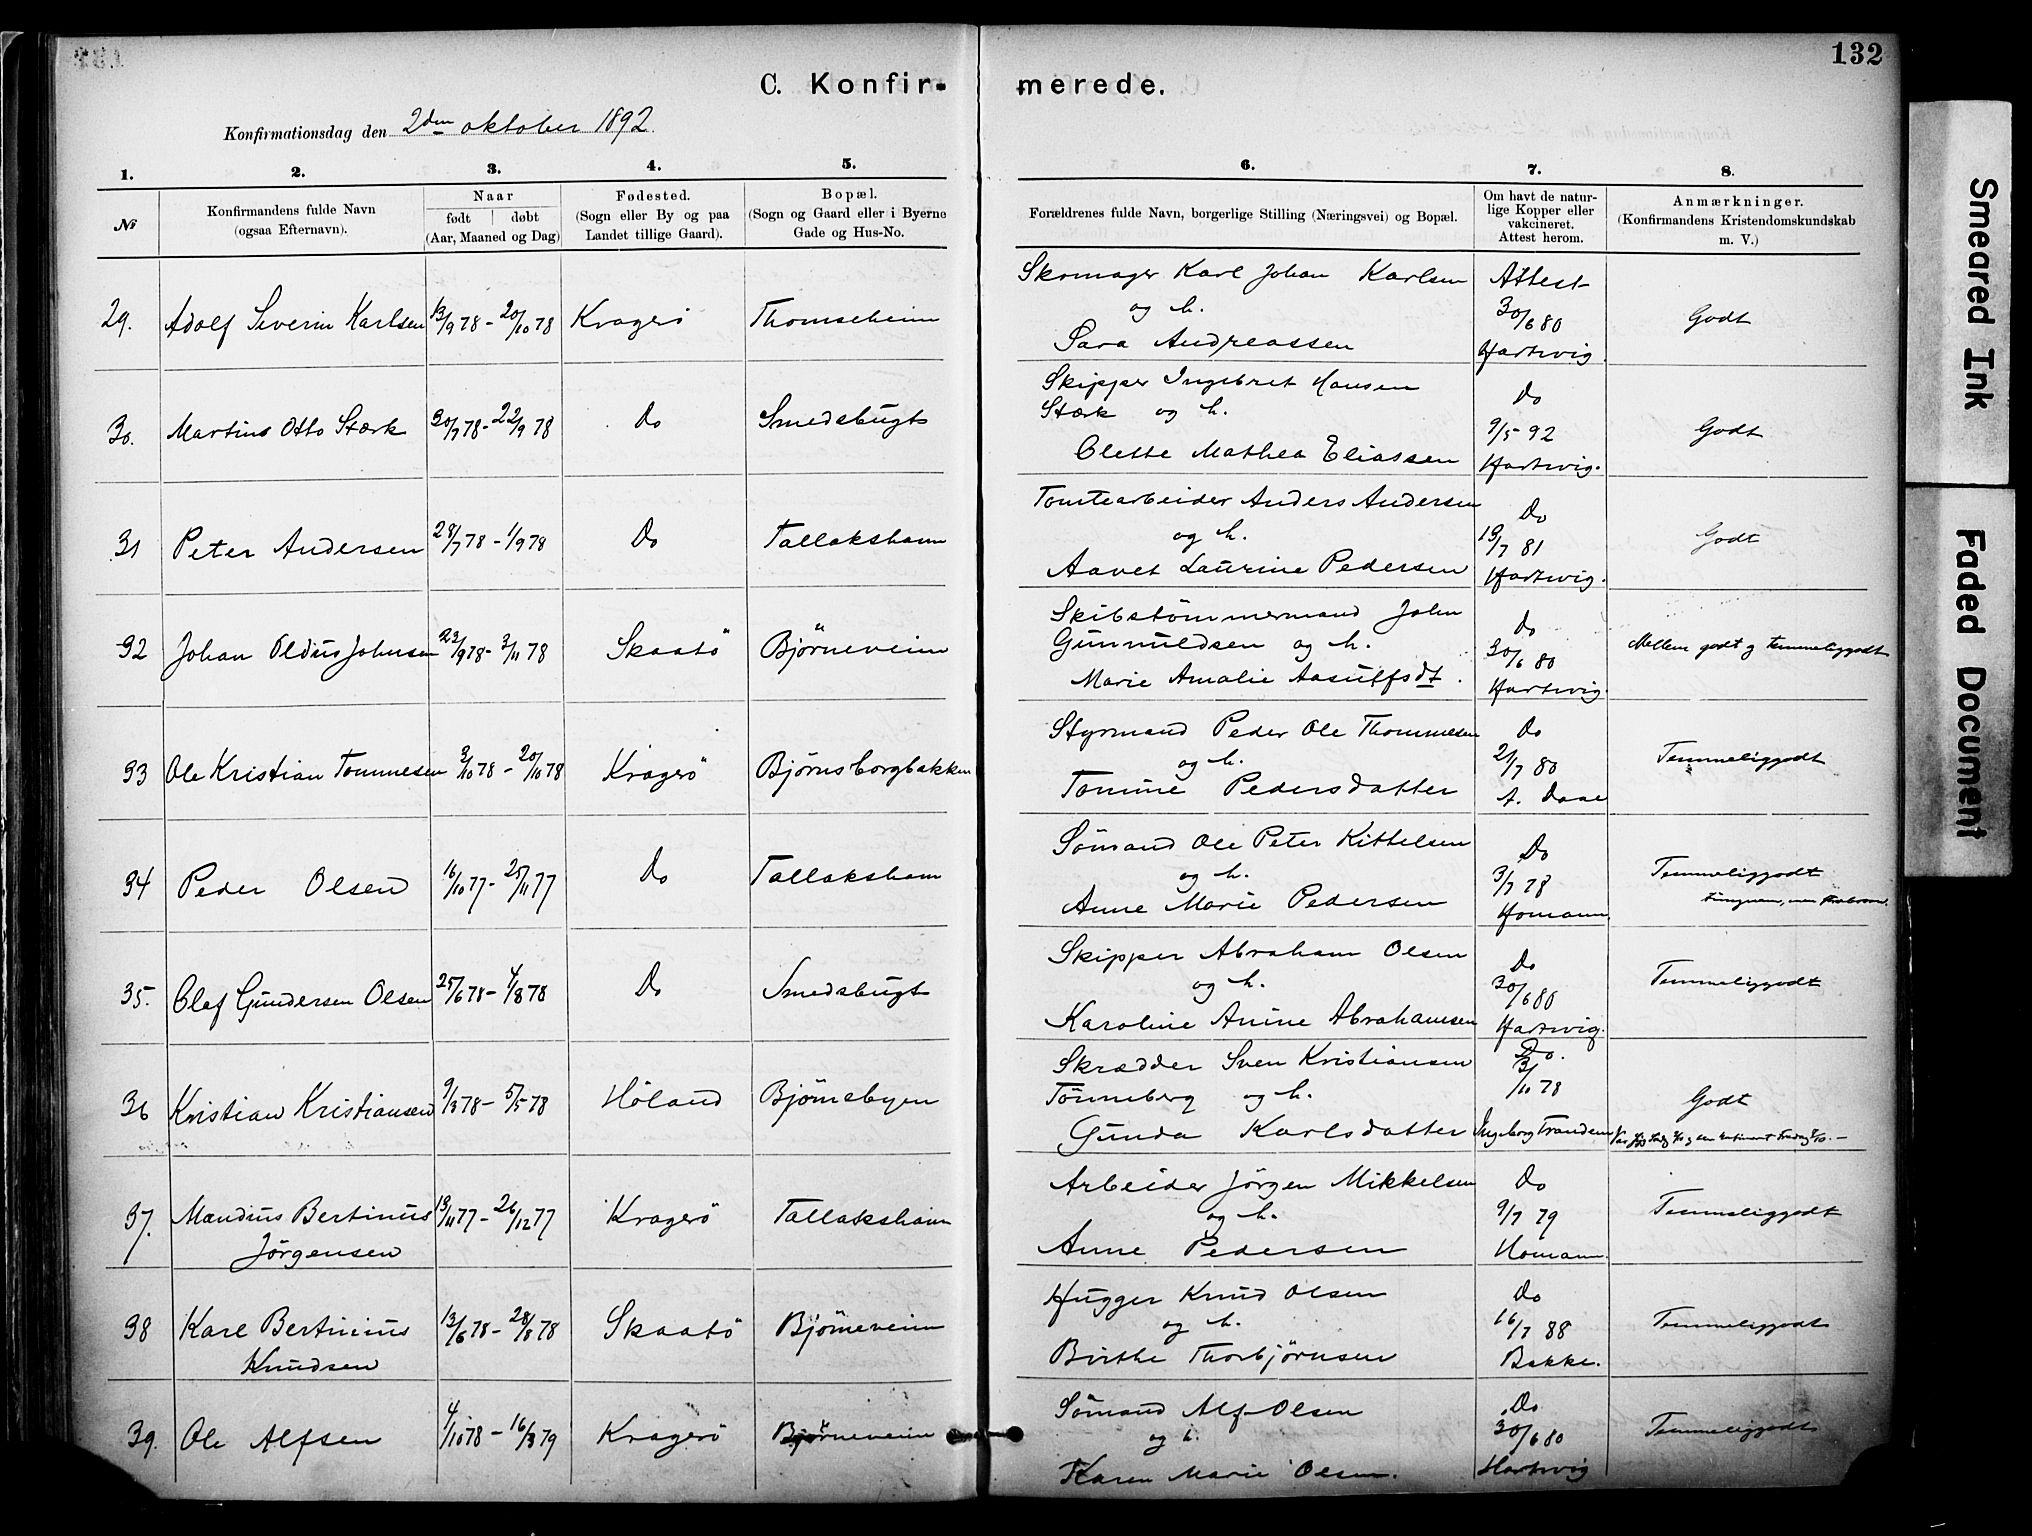 132
C. Konfir-merede.
Konfirmationsdag den 2den oktober 1892.
1. 2. 3. 4. 5. 6. 7. 8.
№
Konfirmandens fulde Navn
(ogsaa Efternavn).
Naar
født | døbt
(Aar, Maaned og Dag)
Fødested.
(Sogn eller By og paa
Landet tillige Gaard).
Bopæl.
(Sogn og Gaard eller i Byerne
Gade og Hus-No.
Forældrenes fulde Navn, borgerlige Stilling (Næringsvei) og Bopæl.
Om havt de natur-
lige Kopper eller
vakcineret.
Attest herom.
Anmærkninger.
(Konfirmandens Kristendomskundskab
m. V.)
29. Adolf Severin Karlsen 13/9 78 - 20/10 78 Kragerö Thomseheim
Skomager Karl Johan Karlsen
og h.
Sara Andreassen
Attest
30/6 80
Hartwig.
Godt
30. Martins Otto Stærk 30/7 78 - 22/9 78 Do Smedsbugt
Skipper Ingebret Hansen
Stærk og h.
Olette Mathea Eliassen
Do
9/5 92
Hartwig.
Godt
31 Peter Andersen 28/7 78 - 1/9 78 Do Tallakshavn
Tomtearbeider Anders Andersen
og h.
Aavet Laurine Pedersen
Do
13/7 81
Hartwig.
Godt
32 Johan Oldus Johnsen 23/9 78 - 3/11 78 Skaatö Bjørneveien
Skibstømmermand John
Gunnuldsen og h.
Marie Amalie Aasulfsdt.
Do
30/6 80
Hartwig.
Mellem godt og temmeliggodt
33 Ole Kristian Tommesen 3/10 78 - 20/10 78 Kragerö Bjørnsborgbakken
Styrmand Peder Ole Thommesen
og h.
Tomine Pedersdatter
Do
2/7 80
A. Daae
Temmeliggodt
34 Peder Olsen 16/10 77 - 25/11 77 Do Tallakshavn
Sömand Ole Peter Kittelsen
og h.
Anne Marie Pedersen
Do
3/7 78
Homann.
Temmeliggodt
35. Olaf Gundersen Olsen 25/6 78 - 4/8 78 Do Smedsbugt
Skipper Abraham Olsen
og h.
Karoline Anine Abrahamsen
Do
30/6 80
Hartwig.
Temmeliggodt
36 Kristian Kristiansen 9/3 78 - 5/5 78 Höland Bjørnebyen
Skrædder Sven Kristiansen
Tönneberg og h.
Gunda Karlsdatter
Do.
3/10 78
Ingeborg Tranden
Godt
37. Mandius Bertinus 13/11 77 - 26/12 77 Kragerö Tallakshavn
Jörgensen
Arbeider Jörgen Mikkelsen
og h.
Anne Pedersen
Do
9/7 79
Homann.
Temmeliggodt
38 Karl Bertinius 13/6 78 - 28/8 78 Skaatö Bjørneveien
Knudsen
Hugger Knud Olsen
og h.
Birthe Thorbjörnsen
Do
16/7 88
Bakke.
Temmeliggodt
39. Ole Alfsen 4/10 78 - 16/3 79 Kragerö Bjørneveien
Sömand Alf Olsen
og h.
Karen Marie Olsen.
Do
30/6 80
Hartwig
Temmeliggodt
Smeared Ink
Faded Document